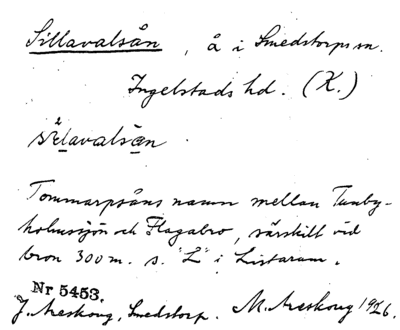 Sillavalsån, å i Smedstorps sn.
Ingelstads hd. (K.)
Tommarpsåns namn mellan Tunby-
holmssjön och Flagabro, särskilt vid
bron 300 m. s. "L" i Listarum.
Nr 5453.
J. Areskoug, Smedstorp. M. Areskoug 19 26.